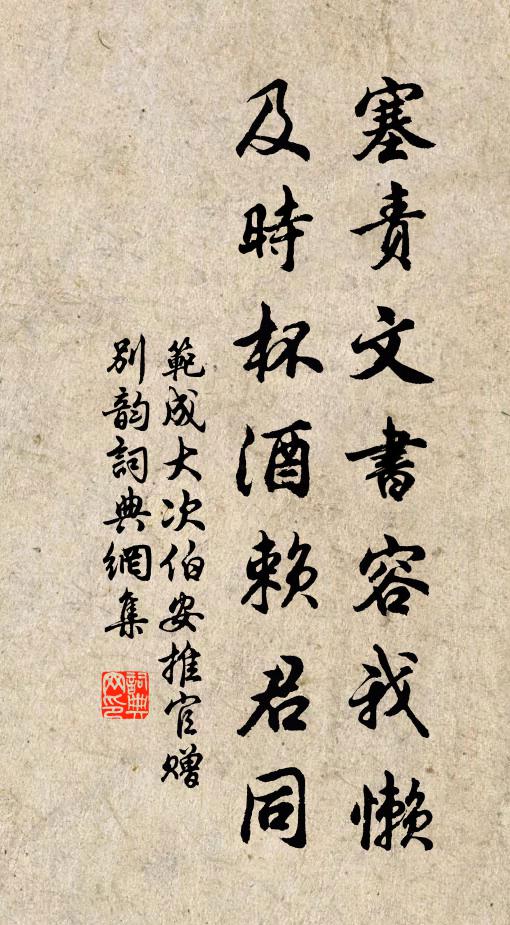 塞責文書容我懶
及時杯酒賴君同
範成大次伯安推官贈
別韵詞典網集
詞典
网印